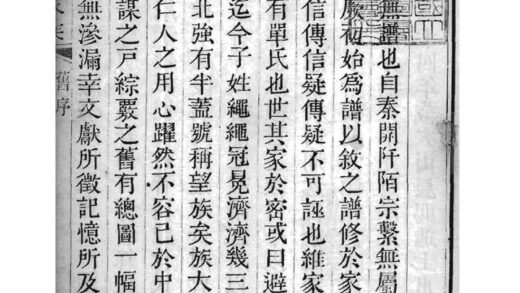 無譜也自秦開阡陌宗繫無屬
厥初始為譜以敘之譜修於家
信傳信疑傳疑不可誣也維家
有單氏也世其家於密或曰避
迄今子姓繩繩冠冕濟濟幾三
北強有半蓋號稱望族矣族大
仁人之用心躍然不容已於中
謀之戸綜覈之舊有總圖一幅
無滲漏幸文獻所徵記憶所及
舊序